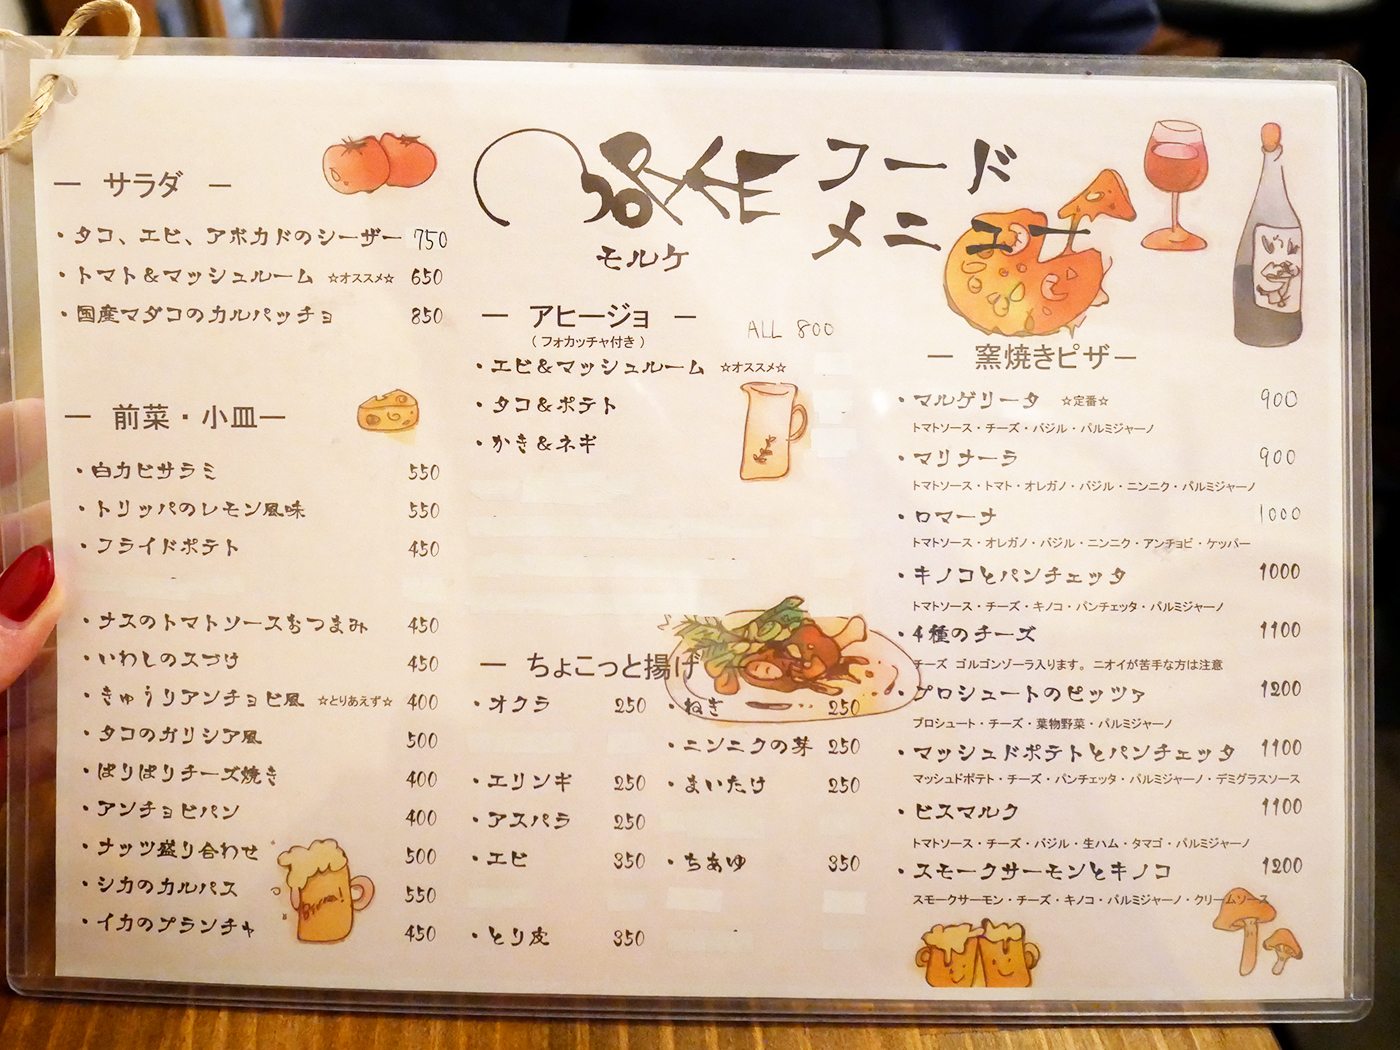 MORKE フード
メニュー
モルケ
ー サラダ ー
・タコ、エビ、アボカドのシーザー 750
・トマト&マッシュルーム ☆オススメ☆ 650
・国産マダコのカルパッチョ 850
ー 前菜・小皿ー
・白カビサラミ 550
・トリッパのレモン風味 550
・フライドポテト 450
・ナスのトマトソースおつまみ 450
・いわしのスづけ 450
・きゅうりアンチョビ風 ☆とりあえず☆ 400
・タコのガリシア風 500
・ぱりぱりチーズ焼き 400
・アンチョビパン 400
・ナッツ盛り合わせ 500
・シカのカルパス 550
・イカのプランチャ 450
ー アヒージョ ー ALL 800
( フォカッチャ付き )
・エビ&マッシュルーム ☆オススメ☆
・タコ&ポテト
・かき&ネギ
ー ちょこっと揚げ
・オクラ 250 ・ねぎ 250
・ニンニクの芽 250
・エリンギ 250 ・まいたけ 250
・アスパラ 250
・エビ 350 ・ちあゆ 350
・とり皮 350
ー 窯焼きピザー
・マルゲリータ ☆定番☆ 900
トマトソース・チーズ・バジル・パルミジャーノ
・マリナーラ 900
トマトソース・トマト・オレガノ・バジル・ニンニク・パルミジャーノ
・ロマーナ 1000
トマトソース・オレガノ・バジル・ニンニク・アンチョビ・ケッパー
・キノコとパンチェッタ 1000
トマトソース・チーズ・キノコ・パンチェッタ・パルミジャーノ
・4種のチーズ 1100
チーズ ゴルゴンゾーラ入ります。ニオイが苦手な方は注意
・プロシュートのピッツァ 1200
プロシュート・チーズ・葉物野菜・パルミジャーノ
・マッシュドポテトとパンチェッタ 1100
マッシュドポテト・チーズ・パンチェッタ・パルミジャーノ・デミグラスソース
・ビスマルク 1100
トマトソース・チーズ・バジル・生ハム・タマゴ・パルミジャーノ
・スモークサーモンとキノコ 1200
スモークサーモン・チーズ・キノコ・パルミジャーノ・クリームソース